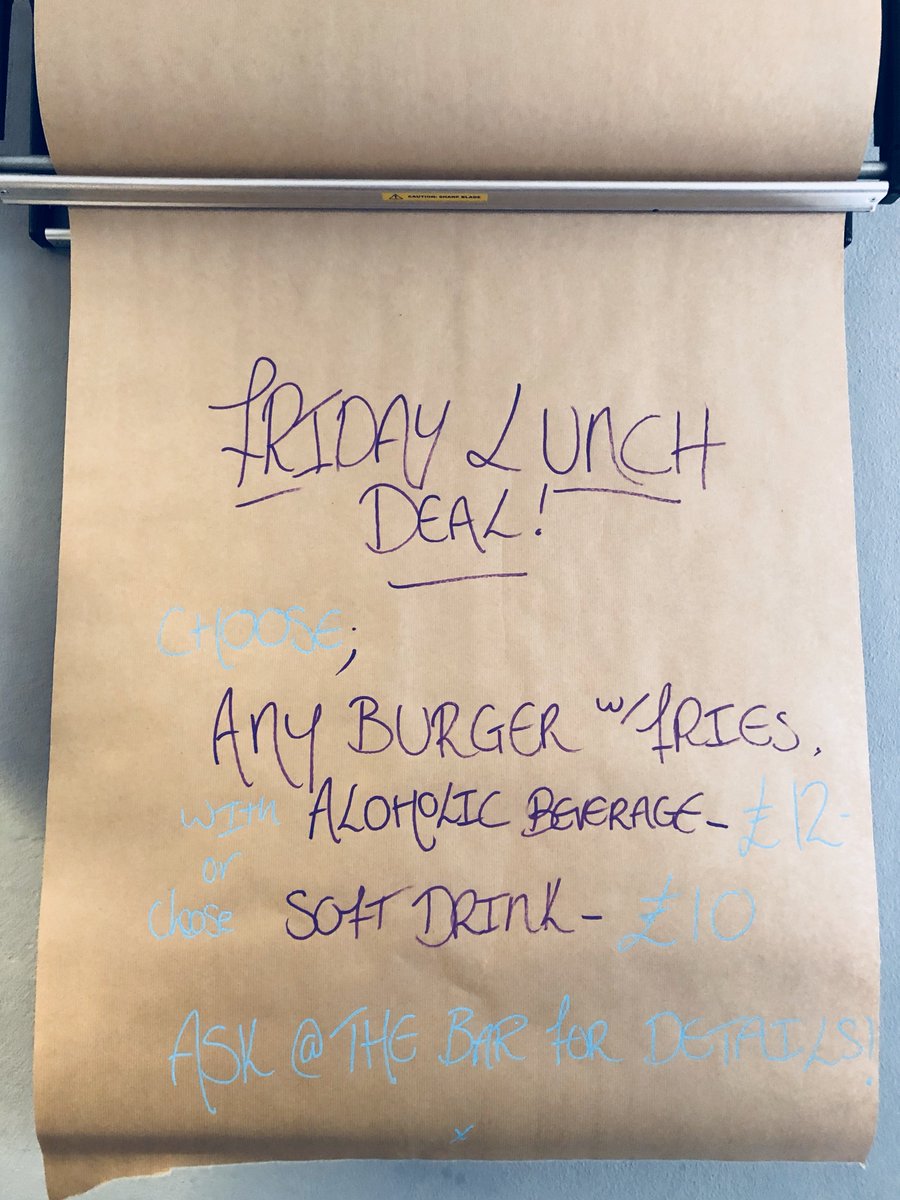 CAUTION: SHARP BLADE
FRIDAY LUNCH
DEAL!
CHOOSE;
ANY BURGER w/ FRIES.
WITH ALOHOLIC BEVERAGE - £12-
or
Choose SOFT DRINK - £10
ASK @ THE BAR FOR DETAILS!
x